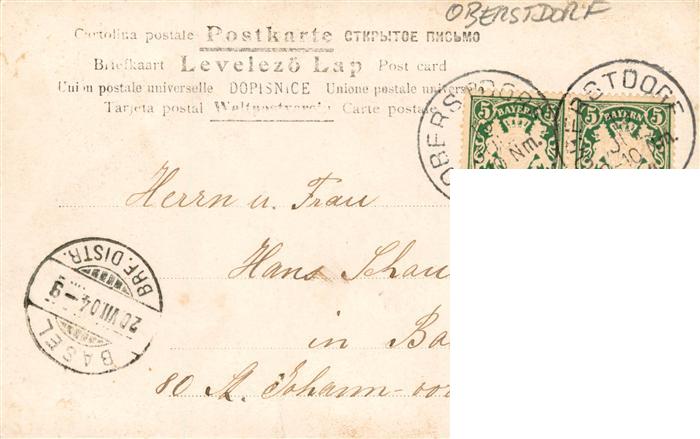 OBERSTDORF
Cartolina postale Postkarte ОТКРЫТОЕ ПИСЬМО
Briefkaart Levelező Lap Post card
Union postale universelle DOPISNICE Unione postale universelle
Tarjeta postal Weltpostverein Carte postale
OBERSTDORF
5 BAYERN 5
Nm.
OBERSTDORF
5 BAYERN 5
Herrn u. Frau
Hans
in
80 St. Johann-
BASEL
20 VII 04-9
BRF. DISTR.